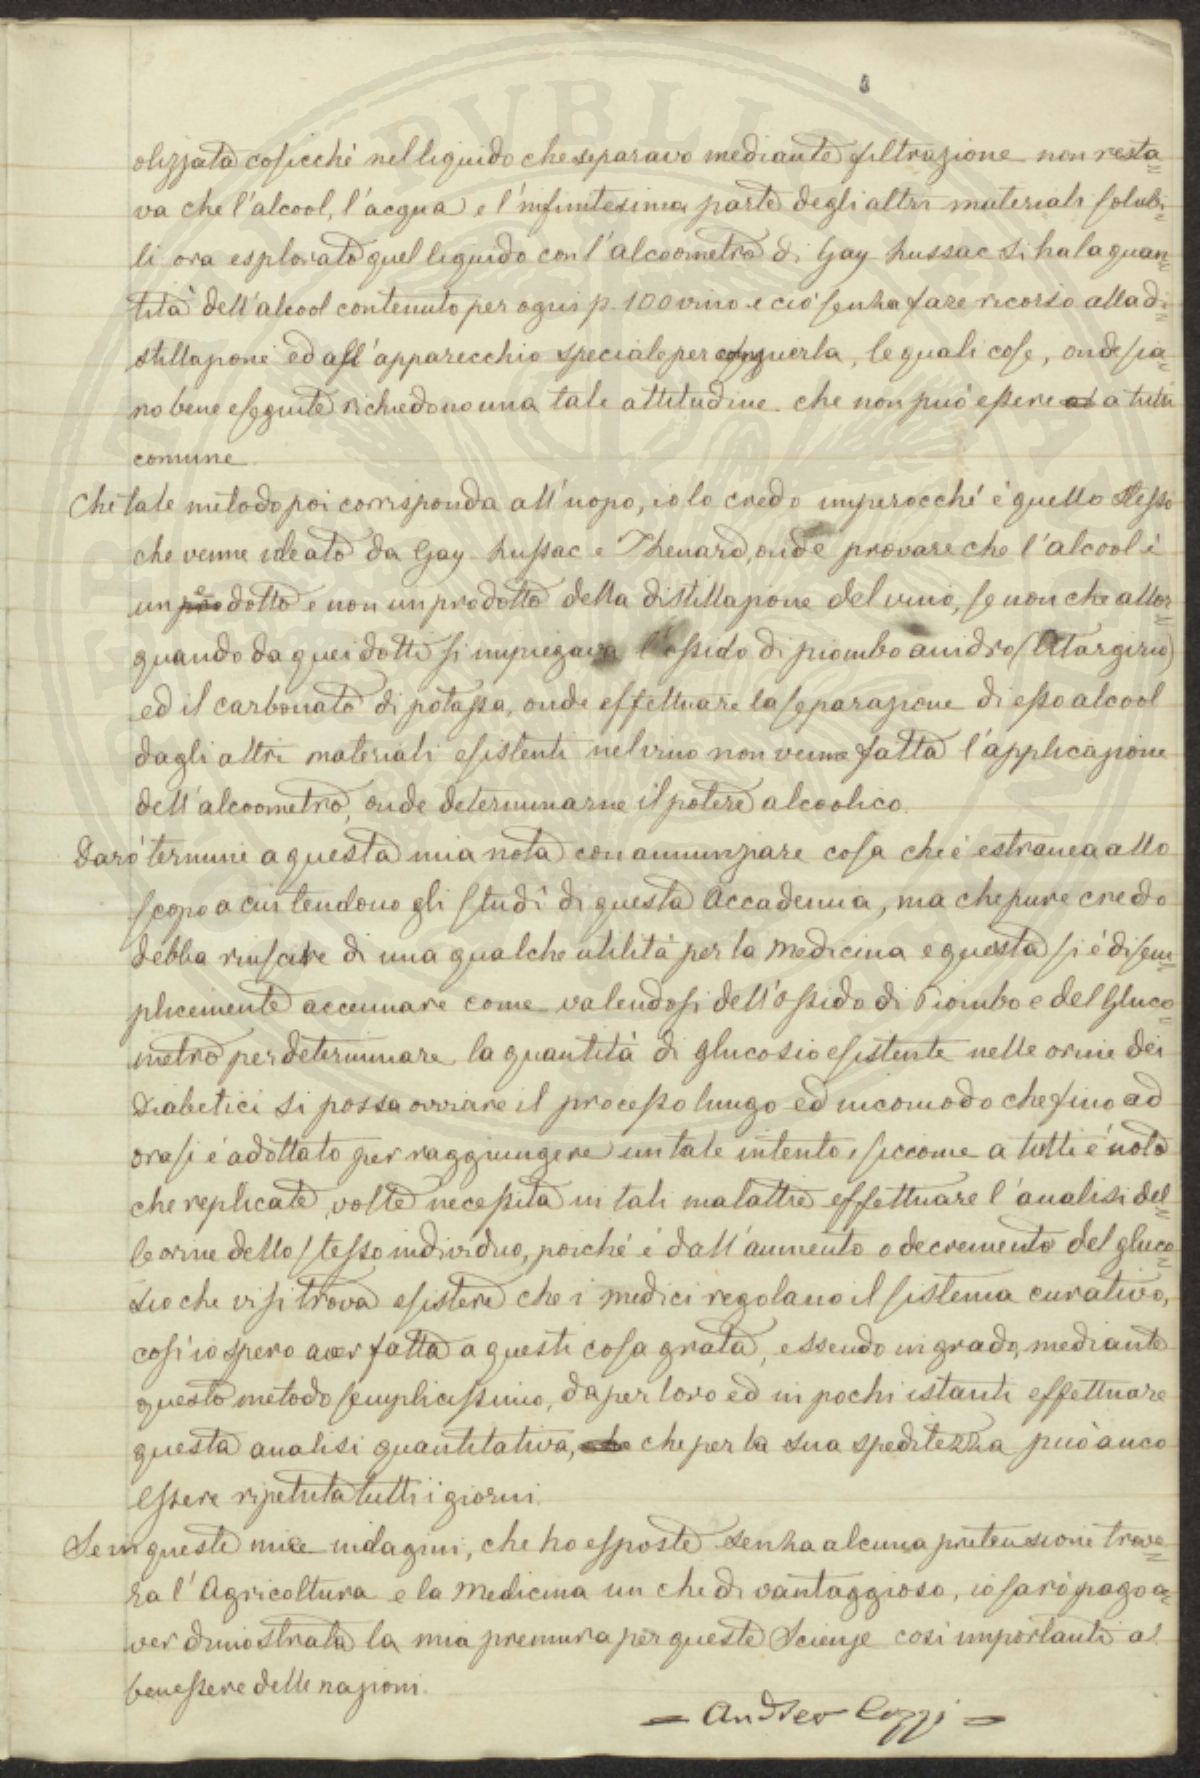 3
olizzata cosicché nel liquido che separavo mediante filtrazione non resta=
va che l'alcool, l'acqua e l'infinitesima parte degli altri materiali solubi=
li ora esplorato quel liquido con l'alcoometro di Gay Lussac si ha la quan=
tità dell'alcool contenuto per ogni p. 100 vino e ciò senza fare ricorso alla di=
stillazione ed all'apparecchio speciale per eseguirla, le quali cose, onde sia=
no bene eseguite richiedono una tale attitudine che non può essere a tutti
comune
Che tale metodo poi corrisponda all'uopo, io lo credo imperocché è quello stesso
che venne ideato da Gay Lussac e Thenard, onde provare che l'alcool è
un edotto e non un prodotto della distillazione del vino, se non che allor=
quando da quei dotti si impiegava l'ossido di piombo anidro (Litargirio)
ed il carbonato di potassa, onde effettuare la separazione di esso alcool
dagli altri materiali esistenti nel vino non venne fatta l'applicazione
dell'alcoometro, onde determinarne il potere alcoolico.
Darò termine a questa mia nota con annunziare cosa che è estranea allo
scopo a cui tendono gli studi di questa Accademia, ma che pure credo
debba riuscire di una qualche utilità per la Medicina e questa si è di sem=
plicemente accennare come valendosi dell'Ossido di Piombo e del Gluco=
metro per determinare la quantità di glucosio esistente nelle orine dei
Diabetici si possa ovviare il processo lungo ed incomodo che fino ad
ora si è adottato per raggiungere un tale intento, siccome a tutti è noto
che replicate volte necessita in tali malattie effettuare l'analisi del=
le orine dello stesso individuo, poiché è dall'aumento o decremento del gluco=
sio che vi si trova esistere che i medici regolano il sistema curativo,
così io spero aver fatta a questi cosa grata, essendo in grado, mediante
questo metodo semplicissimo, da per loro ed in pochi istanti effettuare
questa analisi quantitativa, che per la sua speditezza può anco
essere ripetuta tutti i giorni.
Se in queste mie indagini, che ho esposte senza alcuna pretensione trove=
rà l'Agricoltura e la Medicina un che di vantaggioso, io sarò pago a=
ver dimostrata la mia premura per queste Scienze così importanti al
benessere delle nazioni.
= Andrea Cozzi =